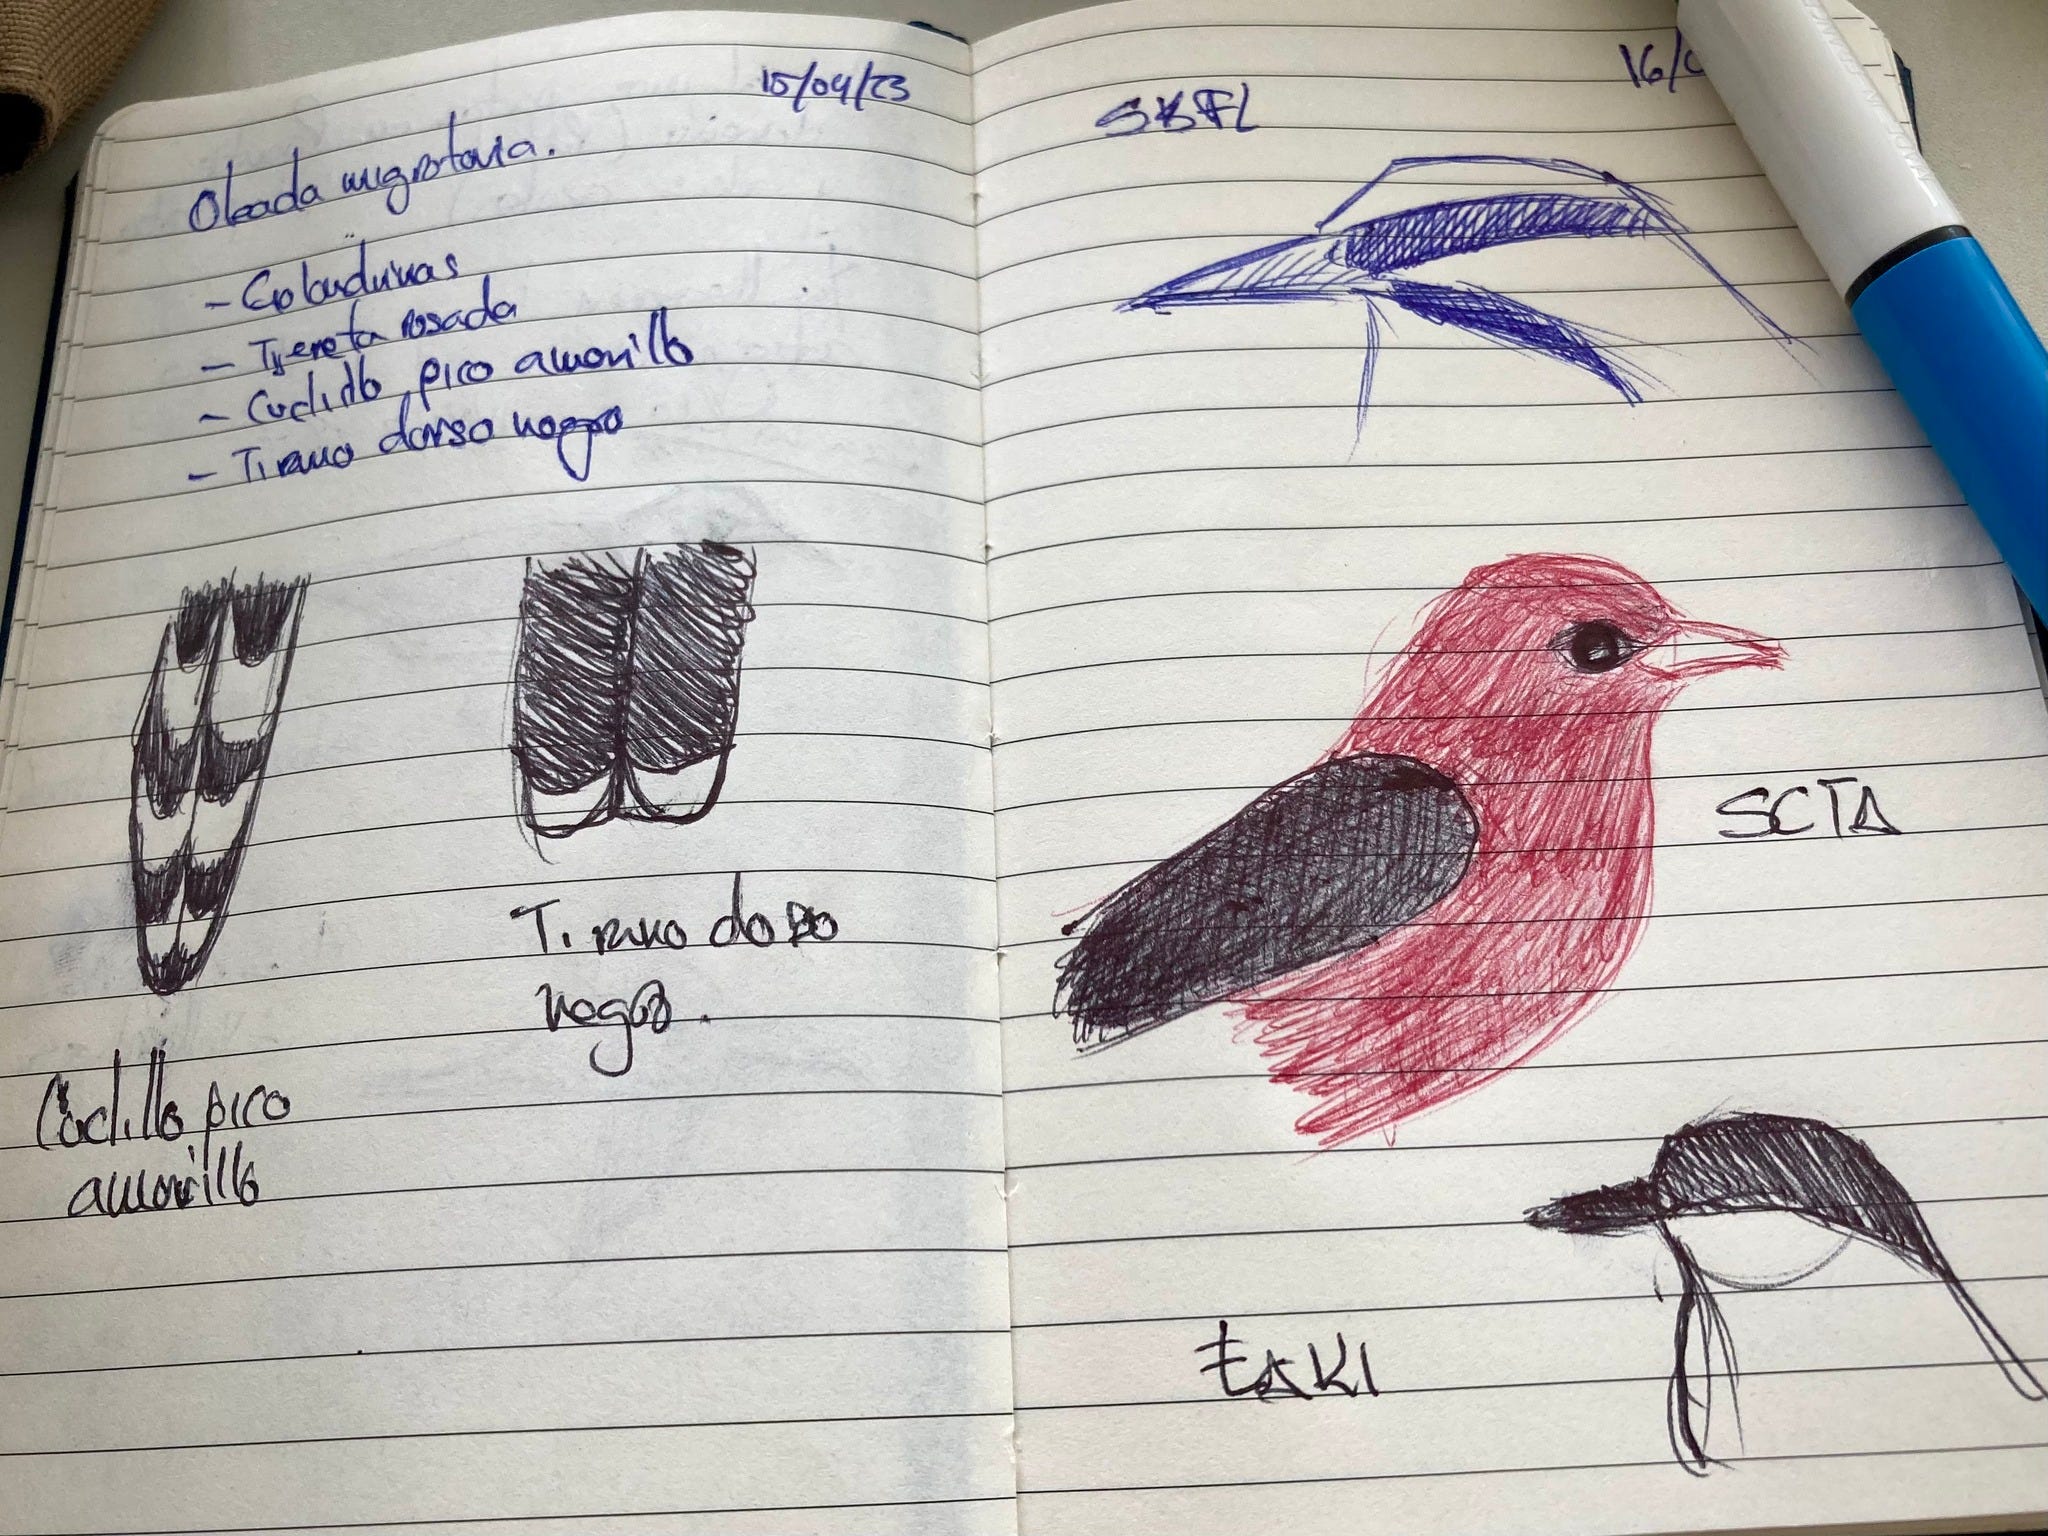 15/04/23
Oleada migratoria.
- Golondrinas
- Tijereta rosada
- Cuclillo pico amarillo
- Tirano dorso negro
Tirano doso
negro.
Cuclillo pico
amarillo
16/0
SBFL
SCTA
EAKI